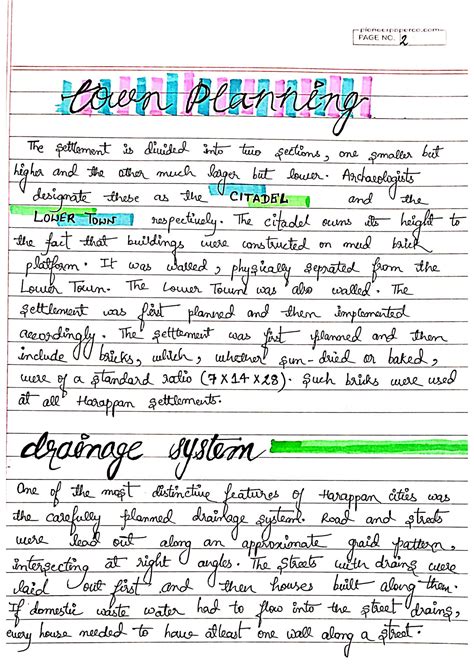 pioneerpaperco.com
PAGE NO. 2
town planning
The settlement is divided into two sections, one smaller but
higher and the other much larger but lower. Archaeologists
designate these as the CITADEL and the
LOWER TOWN respectively. The citadel owns its height to
the fact that buildings were constructed on mud brick
platform. It was walled, physically seprated from the
Lower Town. The Lower Town was also walled. The
settlement was first planned and them implemented
accordingly. The settlement was first planned and then
include bricks, which, whether sun-dried or baked,
were of a standard ratio (7×14×28). Such bricks were used
at all Harappan settlements.
drainage system
One of the most distinctive features of Harappan cities was
the carefully planned drainage system. Road and streets
were lead out along an approximate graid pattern,
intersecting at right angles. The streets with drains were
laid out first and then houses built along them.
If domestic waste water had to flow into the street drains,
every house needed to have atleast one wall along a street.